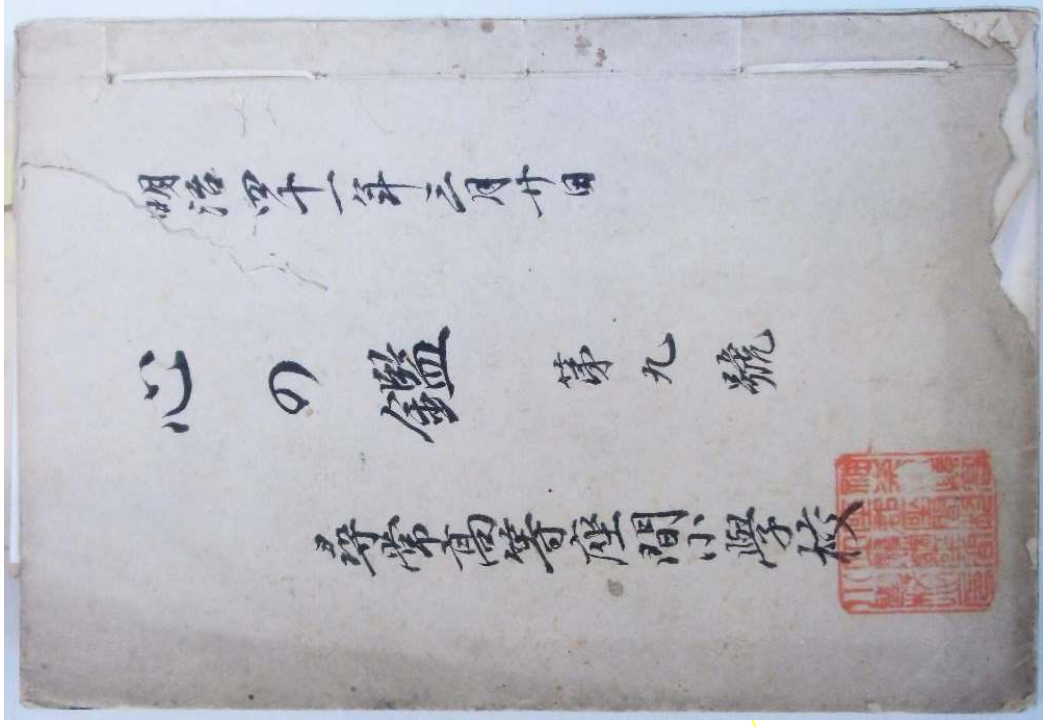 明治四十一年三月廿日
心の鑑 第九號
尋常高等座間小學校